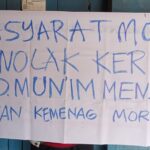 SYARAT MO
NOLAK KER
D.MUNIM MENA
AN KEMENAG MOR